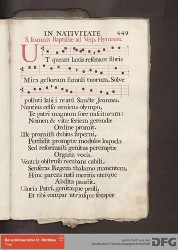 IN NATIVITATE 449
S. Joannis Baptistæ ad Vesp. Hymnus.
Ut queant laxis resonare fibris
Mira gestorum famuli tuorum, Solve
polluti labii reatū Sancte Joannes.
Nuntius celso veniens olympo,
Te patri magnum fore nasciturum:
Nomen & vitæ seriem gerendæ
Ordine promit.
Ille promissi dubius superni,
Perdidit promptæ modulos loquelæ
Sed reformasti genitus peremptæ
Organa vocis.
Ventris obstruso recubans cubili,
Senseras Regem thalamo manentem,
Hinc parens nati meritis uterque
Abdita pandit.
Gloria Patri, genitæque proli,
Et tibi compar utriusque semper
DFG